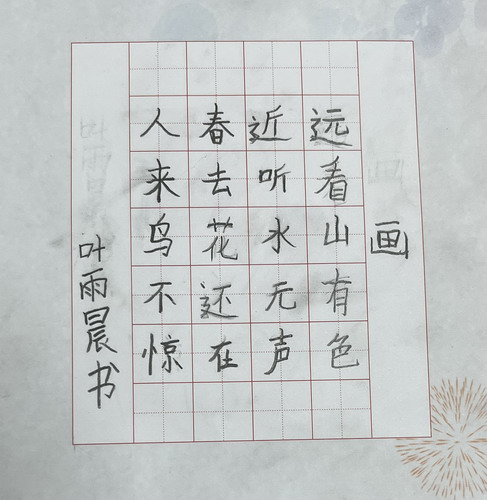 画
远看山有色
近听水无声
春去花还在
人来鸟不惊
叶雨晨书